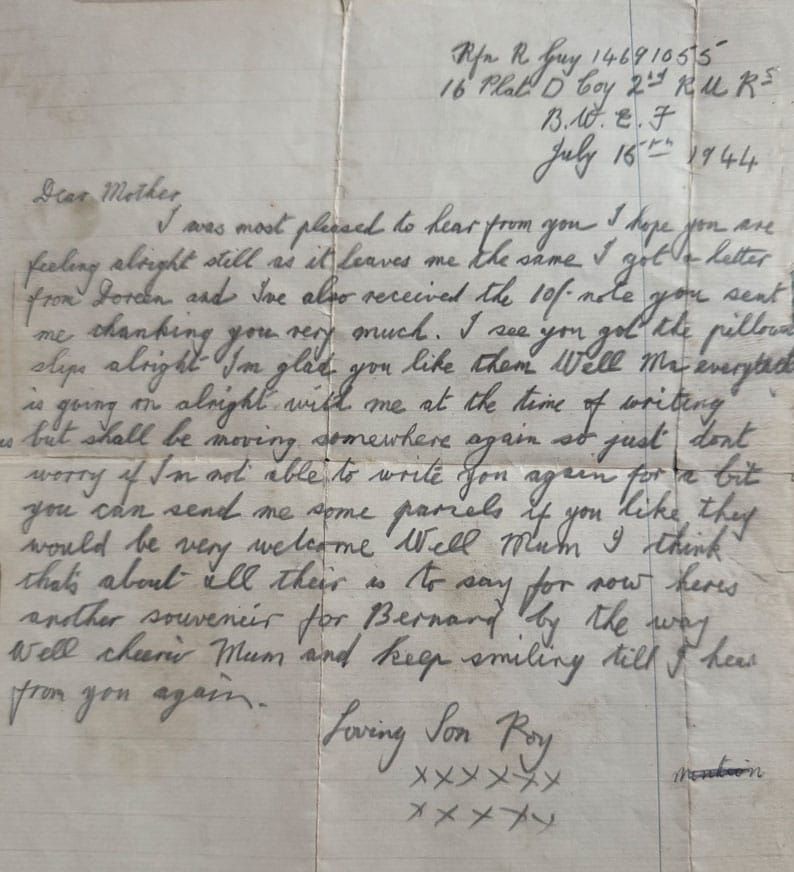 Rfn R Guy 14691055
16 Plat. D Coy 2nd R U Rs
B.W.E.F
July 16th 1944
Dear Mother
I was most pleased to hear from you I hope you are
feeling alright still as it leaves me the same I got a letter
from Doreen and Ive also received the 10/- note you sent
me thanking you very much. I see you got the pillow
slips alright Im glad you like them Well Ma
is going on alright with me at the time of writing
but shall be moving somewhere again so just dont
worry if Im not able to write you again for a bit
you can send me some parcels if you like they
would be very welcome Well Mum I think
thats about all their is to say for now heres
another souveneir for Bernard by the way
Well cheerio Mum and keep smiling till I hear
from you again.
Loving Son Roy
xxxxxx
xxxxx
mention